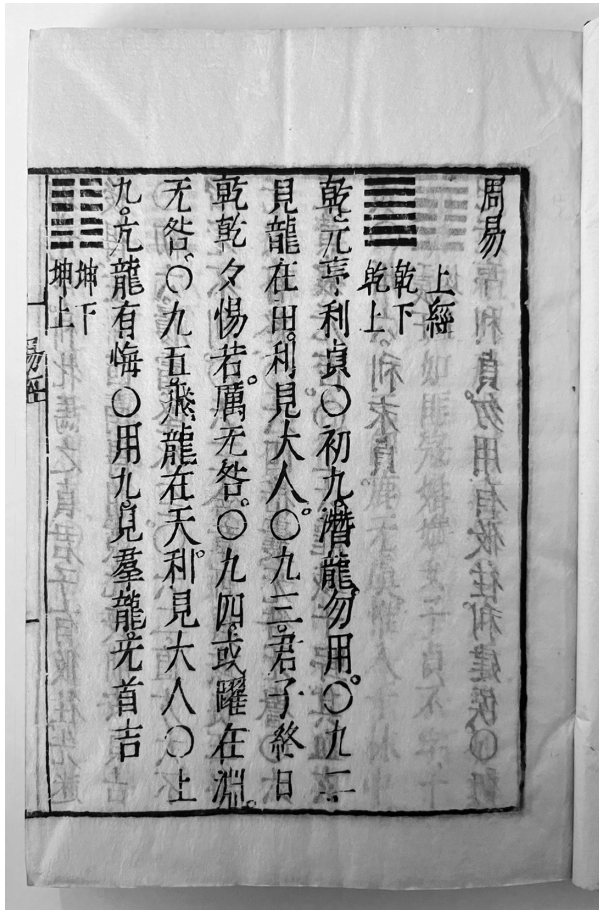 周易
上經
乾下
乾上
乾。元亨利貞〇初九。潛龍勿用。〇九二
見龍在田。利見大人。〇九三。君子終日
乾乾夕惕若。厲无咎。〇九四。或躍在淵。
无咎。〇九五。飛龍在天。利見大人〇上
九。亢龍有悔〇用九。見羣龍无首吉
坤下
坤上
易經